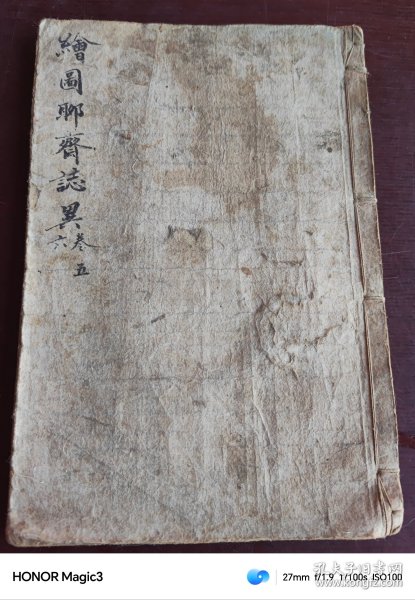 繪圖聊齋誌異
卷五
六
HONOR Magic3
27mm f/1.9 1/100s ISO100
孔夫子旧书网